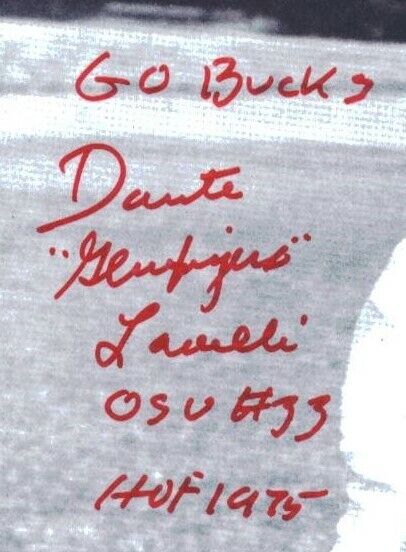 GO BUCKS
Dante
"Gluefingers"
Lavelli
OSU #33
HOF 1975